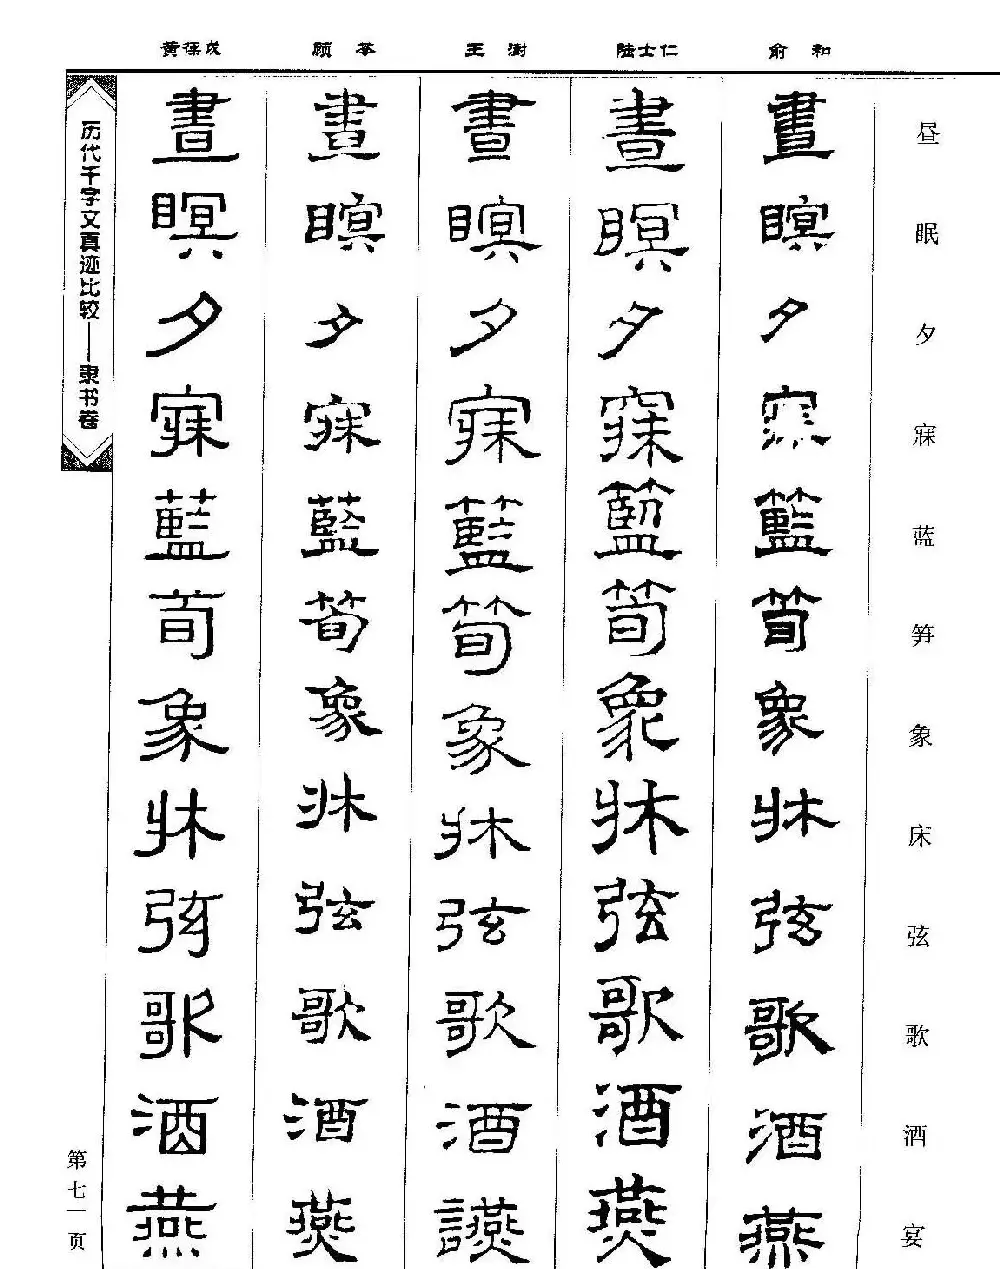 昼眠夕寐蓝笋象床弦歌酒宴
俞和
晝瞑夕寐籃筍象牀弦歌酒燕
陆士仁
晝瞑夕寐籃筍象牀弦歌酒燕
王澍
晝瞑夕寐籃筍象牀弦歌酒讌
顾苓
晝瞑夕寐藍筍象牀弦歌酒燕
黄葆戉
晝瞑夕寐藍荀象牀弦歌酒燕
历代千字文真迹比较——隶书卷
第七一页